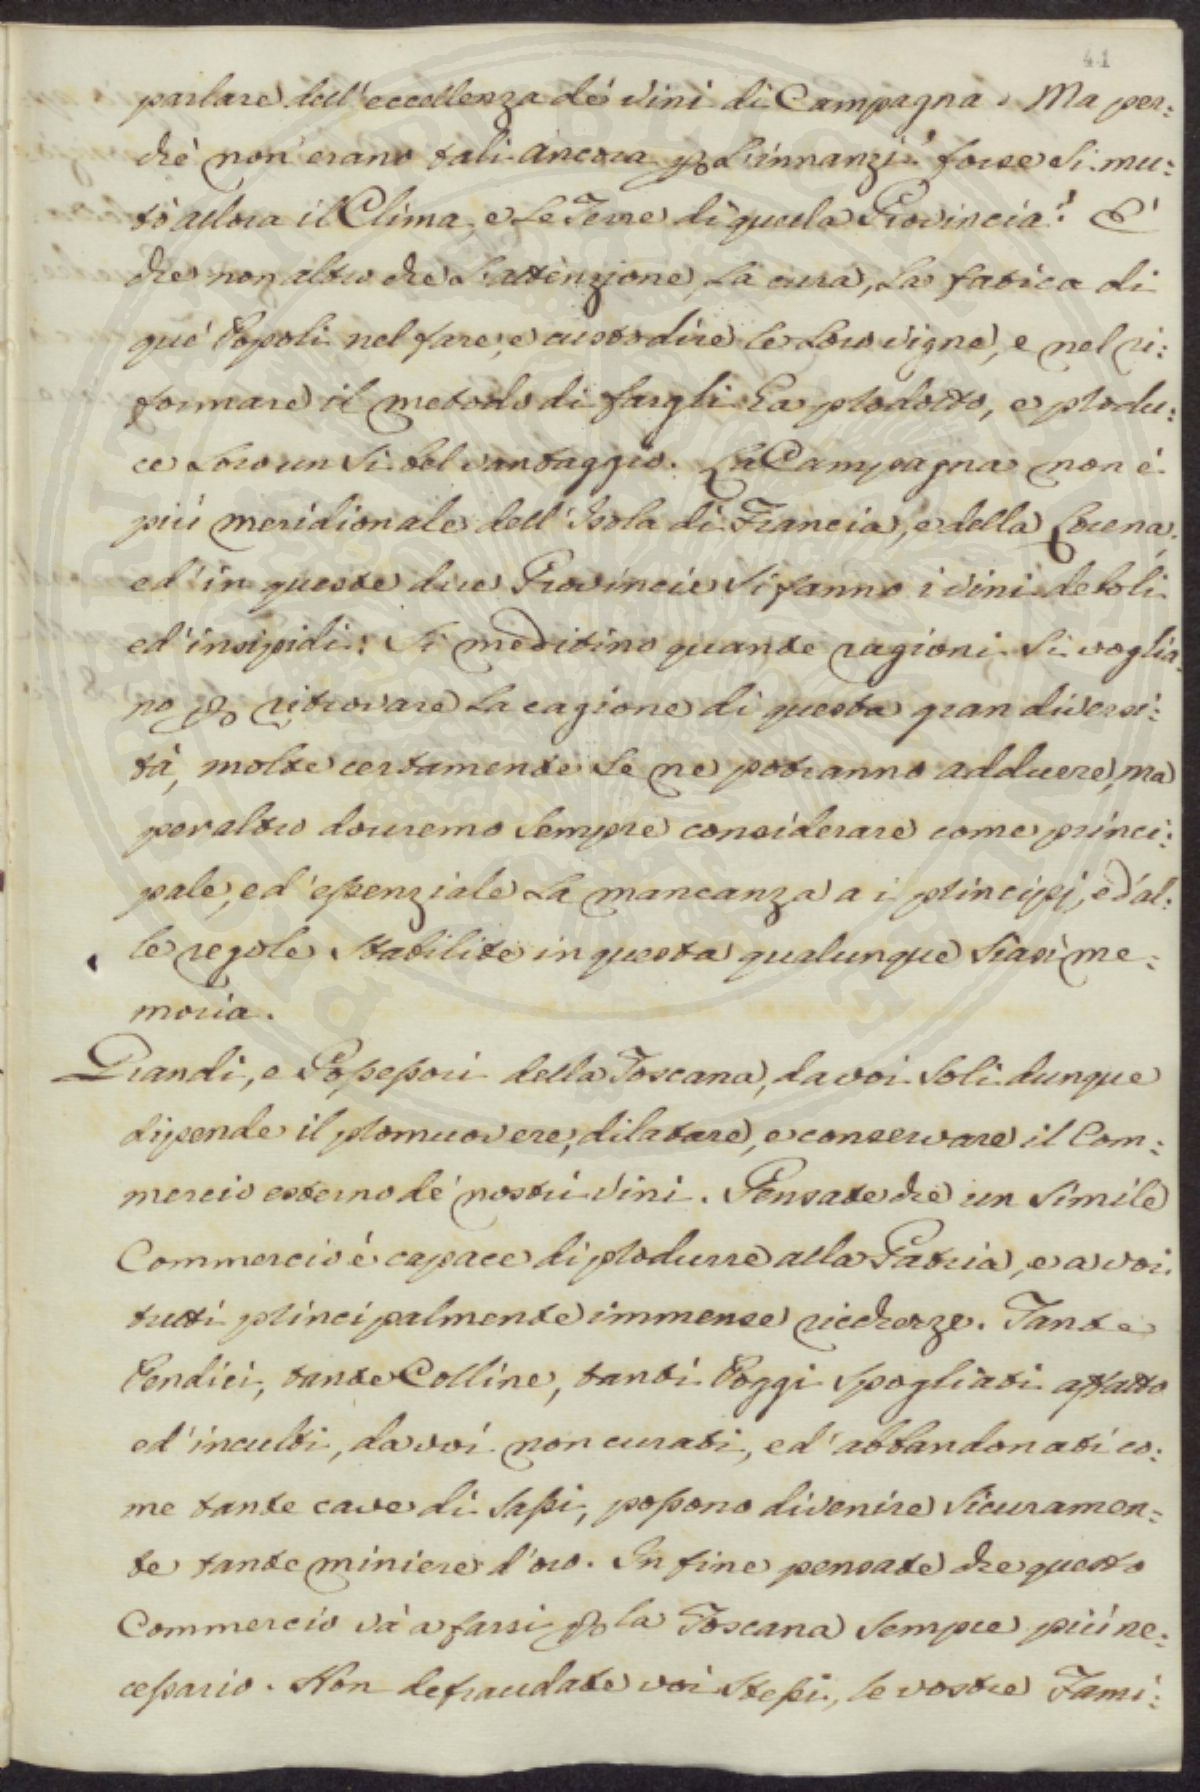 41
parlare dell'eccellenza de' vini di Campagna. Ma per:
chè non erano tali ancora p. l'innanzi? forse si mu:
tò allora il Clima, e le Terre di quella Provincia? E'
che non altro che l'attenzione, la cura, la fatica di
que' Popoli nel fare, e custodire le loro vigne, e nel ri:
formare il metodo di fargli ha prodotto, e produ:
ce loro un sì bel vantaggio. La Campagna non é
più meridionale dell'Isola di Francia, e della Lorena,
ed' in queste due Provincie si fanno i vini deboli
ed'insipidi: Si meditino quante ragioni si voglia:
no p. ritrovare la cagione di questa gran diversi:
tà, molte certamente se ne potranno addurre, ma
per altro dovremo sempre considerare come princi:
pale, ed'essenziale la mancanza a i principj, ed'al:
le regole stabilite in questa qualunque siasi me:
moria.
Grandi, e Possessori della Toscana, da voi soli dunque
dipende il promuovere, dilatare, e conservare il Com:
mercio esterno de' nostri vini. Pensate che un simile
Commercio è capace di produrre alla Patria, e a voi
tutti principalmente immense ricchezze. Tante
Pendici, tante Colline, tanti Poggi spogliati affatto
ed'inculti, da voi non curati, ed'abbandonati co:
me tante cave di sassi, possono divenire sicuramen:
te tante miniere d'oro. In fine pensate che questo
Commercio và a farsi p. la Toscana sempre più ne:
cessario. Non defraudate voi stessi, le vostre Fami: